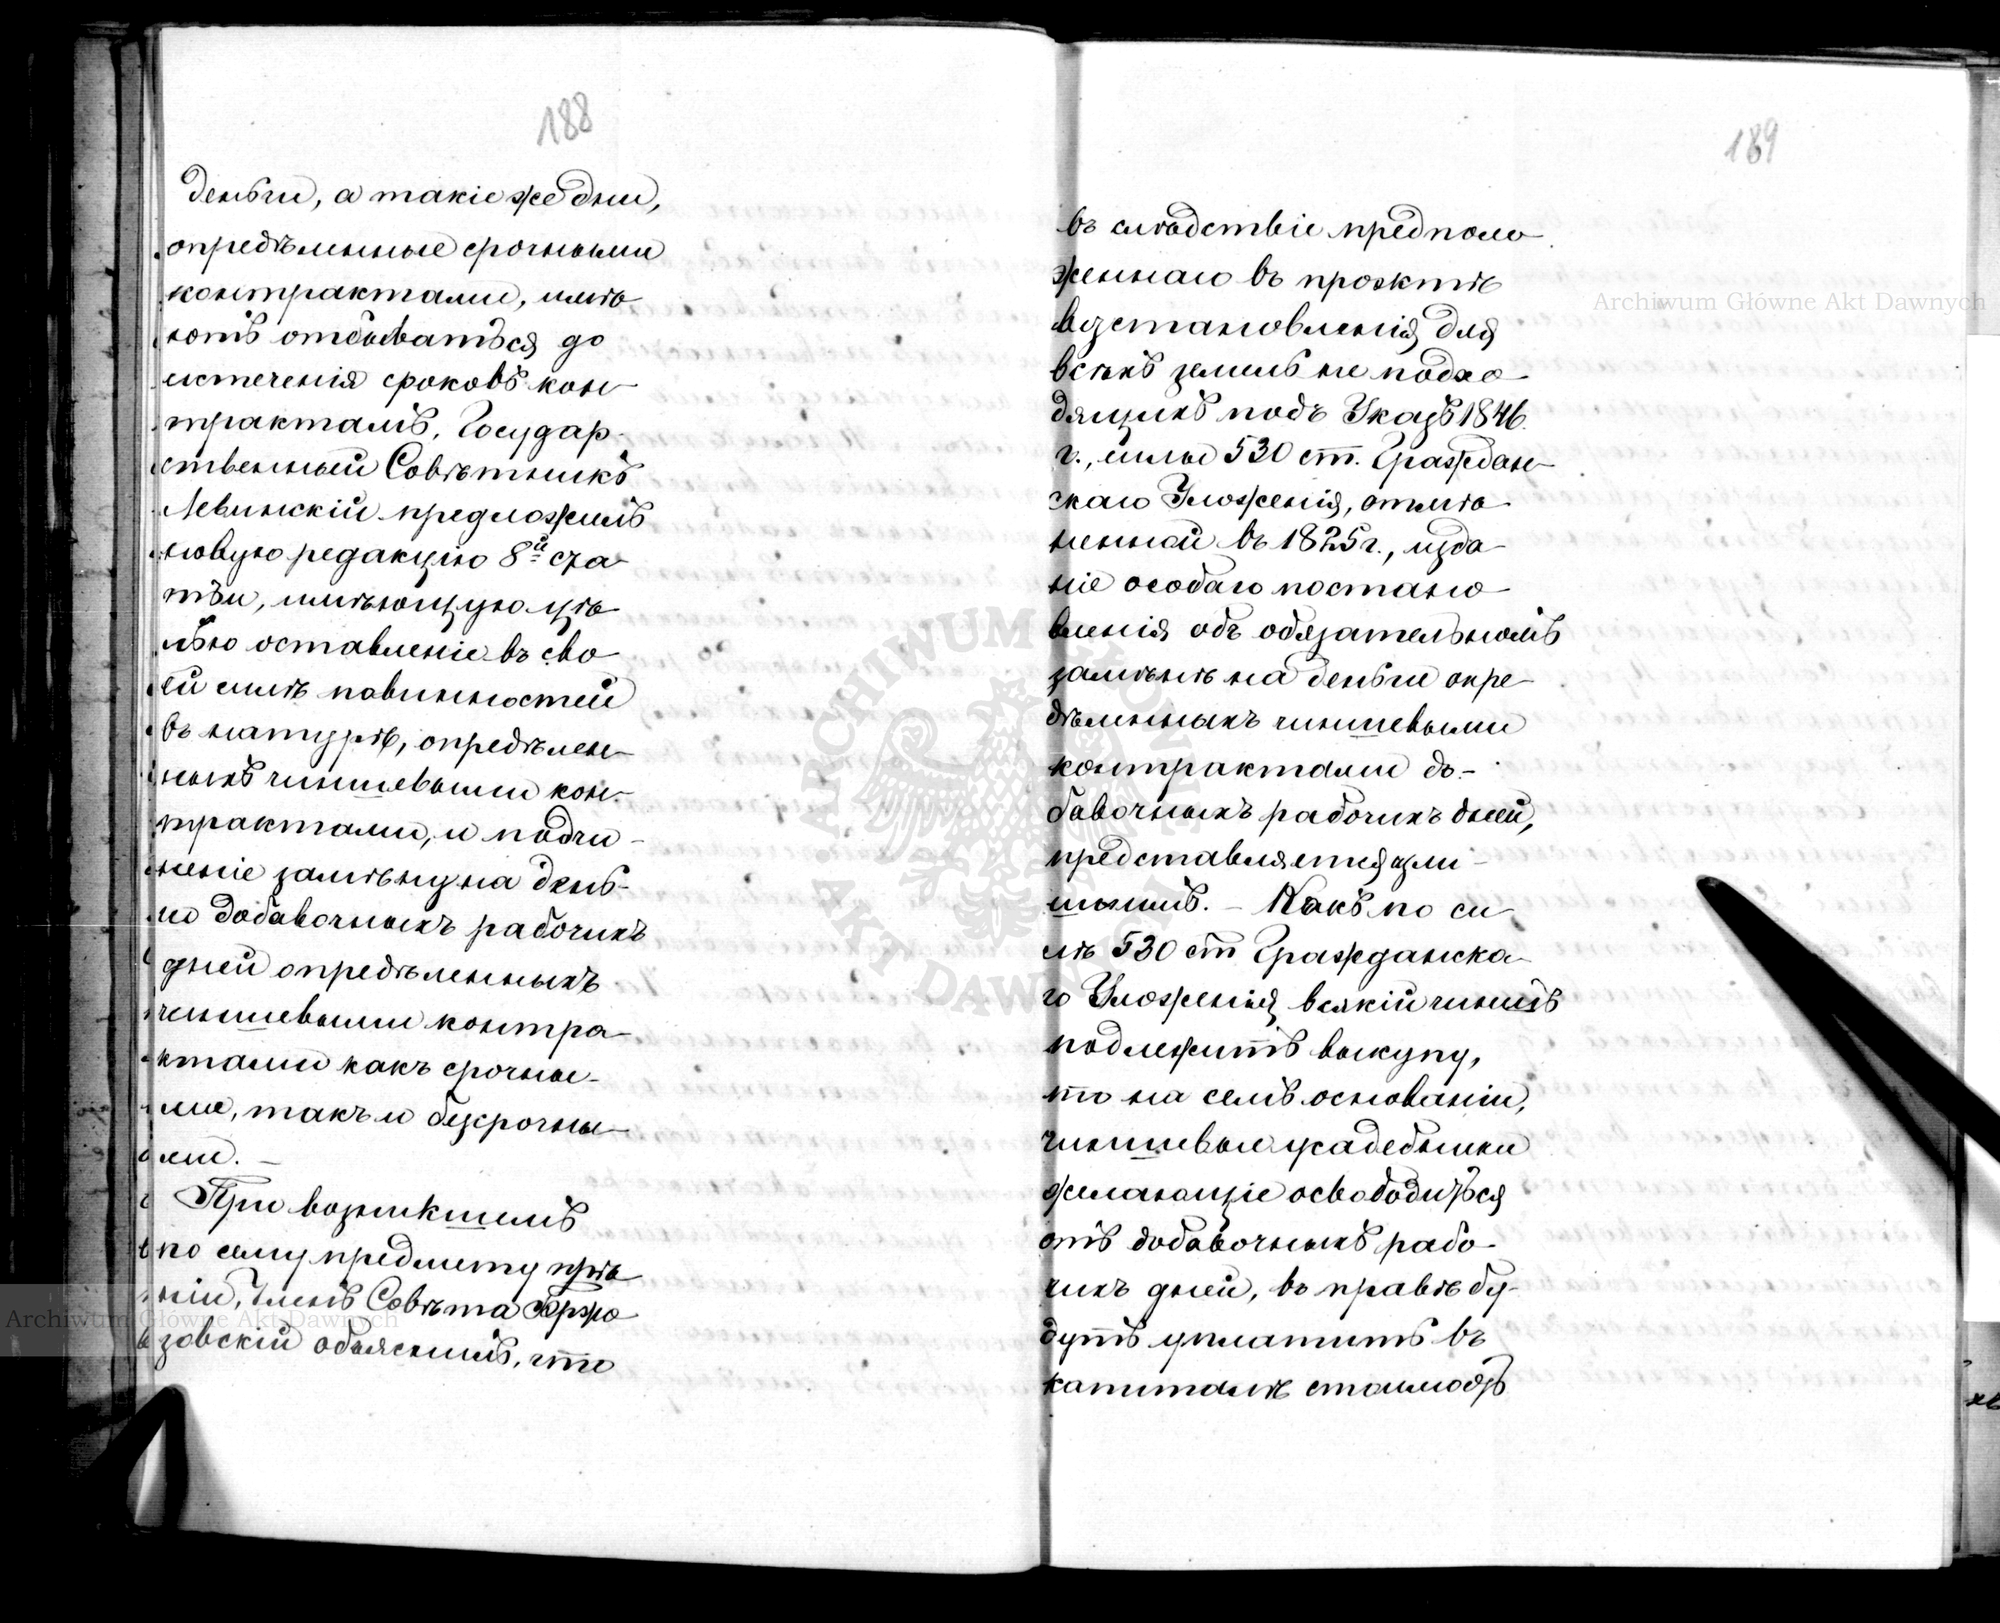 188
деньги, а такіе же дни,
опредѣленные срочными
контрактами, имѣ
ютъ отбываться до
истеченія сроковъ кон-
трактамъ. Государ-
ственный Совѣтникъ
Левинскій предложилъ
новую редакцію 8й ста
тьи, имѣющую цѣ
лью оставленіе въ сво
ей силѣ повинностей
въ натурѣ, опредѣлен-
ныхъ чиншевыми кон-
трактами, и подчи-
неніе замѣну на день-
ги добавочныхъ рабочихъ
дней опредѣленныхъ
чиншевыми контра-
ктами какъ срочны-
ми, такъ и безсрочны-
ми. –
При возникшемъ
по сему предмету прѣ
ніи, Членъ Совѣта
зовскій объяснилъ, что
189
въ слѣдствіе предполо-
женнаго въ проэктѣ
возстановленія для
всѣхъ земель не подхо-
дящихъ подъ Указъ 1846.
г., силы 530 ст. Граждан-
скаго Уложенія, отмѣ-
ненной въ 1825 г., изда-
ніе особаго постано-
вленія объ обязательномъ
замѣнѣ на деньги опре-
дѣленныхъ чиншевыми
контрактами до-
бавочныхъ рабочихъ дней,
представляется изли-
шнимъ. – Какъ по си-
лѣ 530 ст Гражданска-
го Уложенія всякій чиншъ
подлежитъ выкупу,
то на семъ основаніи,
чиншевые
желающіе освободиться
отъ добавочныхъ рабо-
чихъ дней, въ правѣ бу-
дутъ уплатить въ
капиталѣ стоимость
Archiwum Główne Akt Dawnych
Archiwum Główne Akt Dawnych
ARCHIWUM GŁÓWNE AKT DAWNYCH